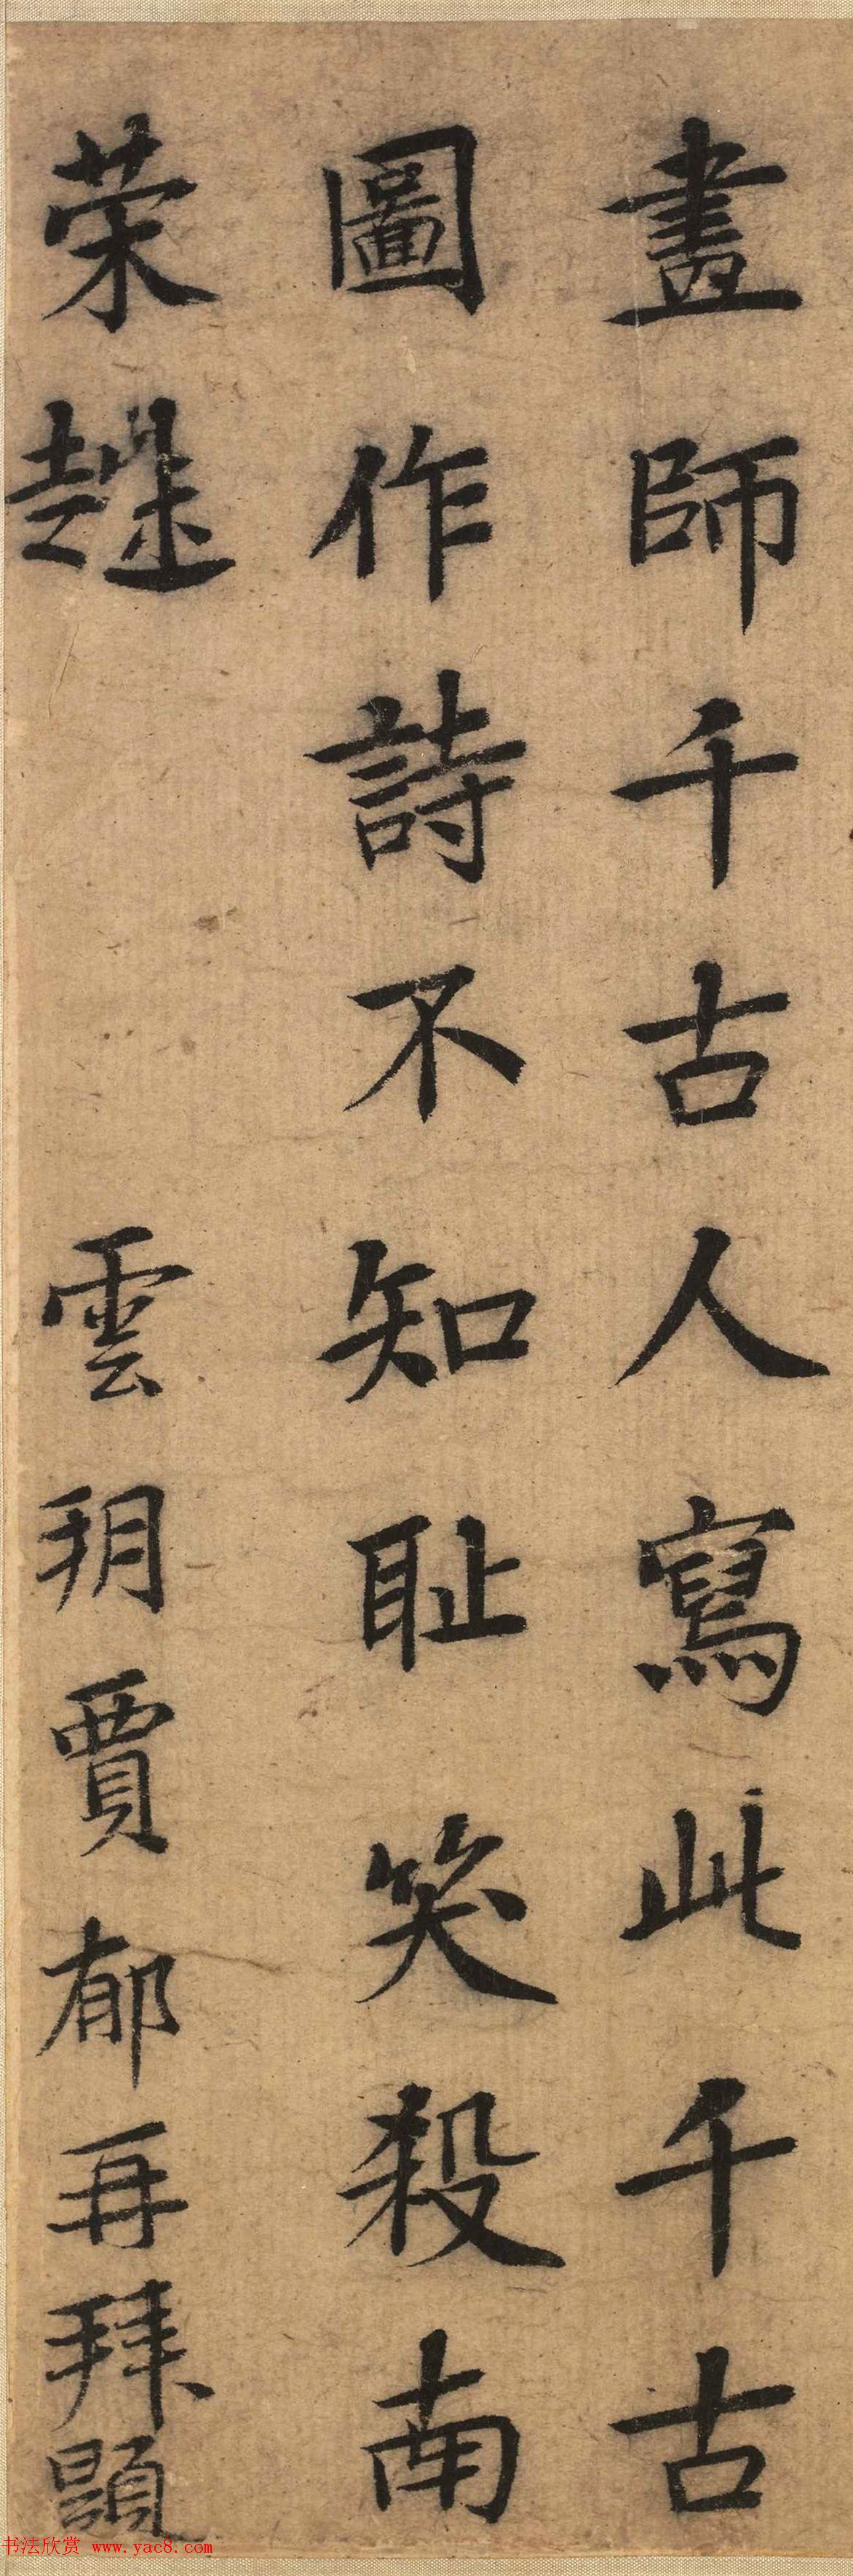 畫師千古人寫此千古
圖作詩不知耻笑殺南
荣趎 雲玥賈郁再拜題
书法欣赏 www.yac8.com